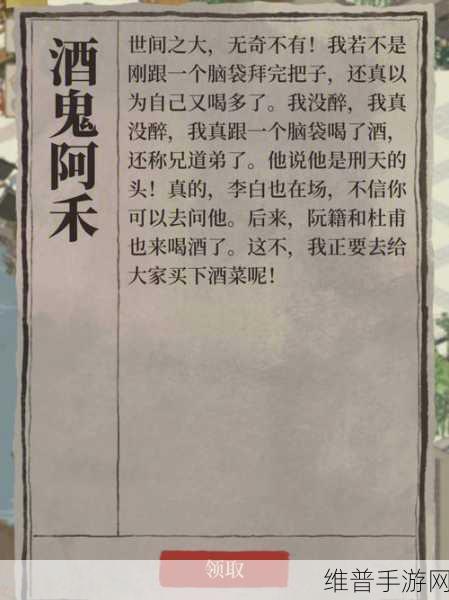 酒鬼阿禾
世间之大，无奇不有！我若不是
刚跟一个脑袋拜完把子，还真以
为自己又喝多了。我没醉，我真
没醉，我真跟一个脑袋喝了酒，
还称兄道弟了。他说他是刑天的
头！真的，李白也在场，不信你
可以去问他。后来，阮籍和杜甫
也来喝酒了。这不，我正要去给
大家买下酒菜呢！
领取
维普手游网